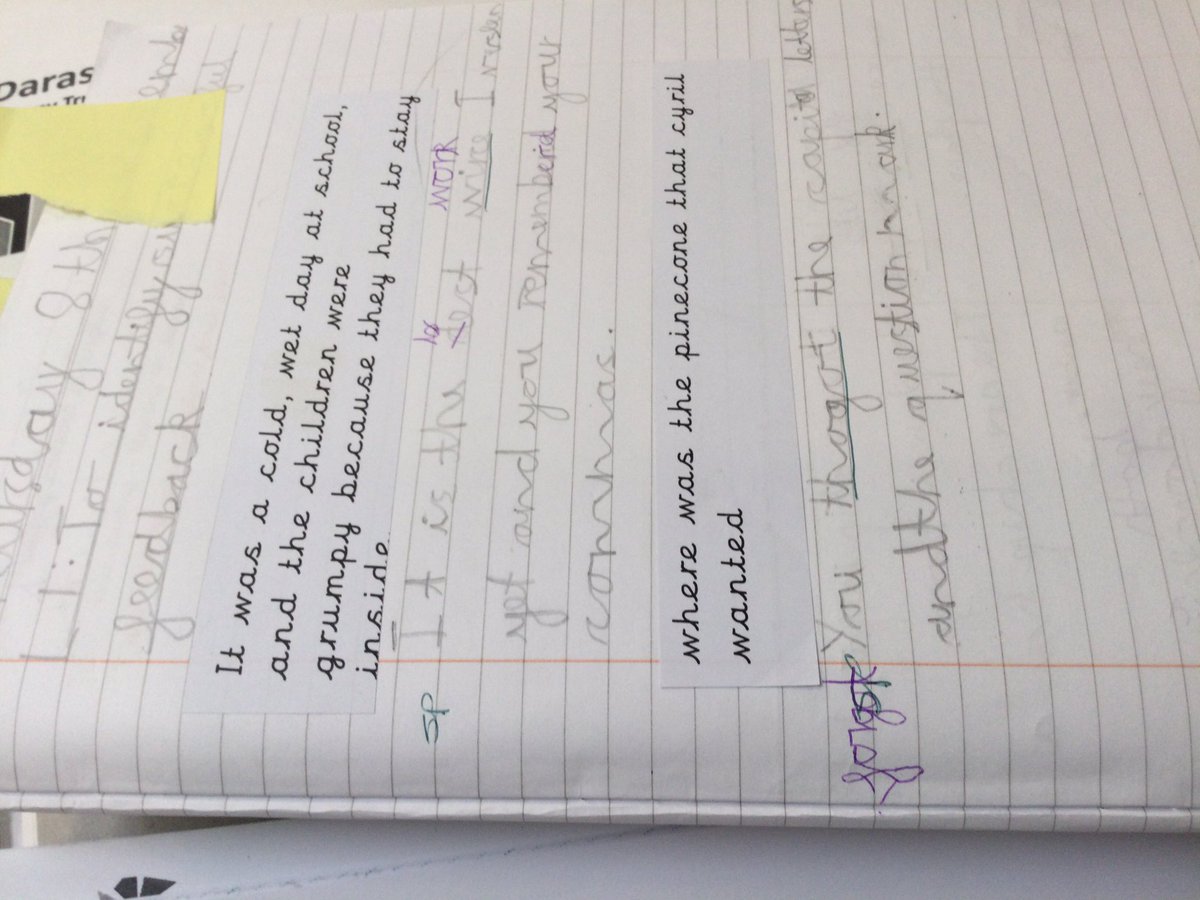 Daras
8th
L I: To identify
feedback
It was a cold, wet day at school,
and the children were
grumpy because they had to stay
inside
sp
work
It is the best wire I
yet and you rememberd your
commas.
where was the pinecone that cyril
wanted
sp
forgot
You thogot the capital letters
and the question mark.